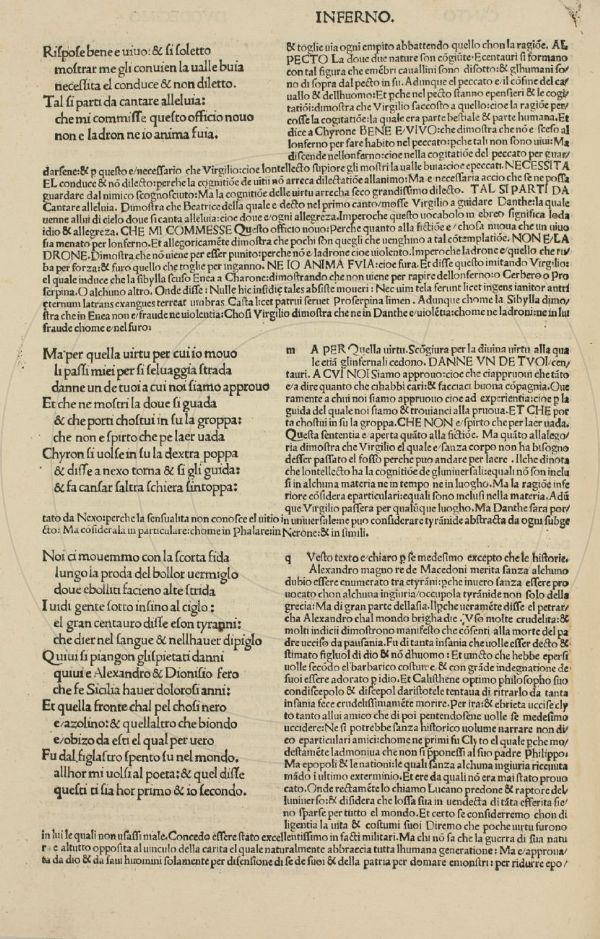 INFERNO.
Rispose bene e uiuo: & si soletto
mostrar me gli conuien la ualle buia
necessita el conduce & non diletto.
Tal si parti da cantare alleluia:
che mi commisse questo officio nouo
non e ladron ne io anima fuia.
& toglie uia ogni empito abbattendo quello chon la ragiõe. AL
PECTO La doue due nature son cõgiũte. Ecentauri si formano
con tal figura che emẽbri cauallini sono disotto: & glhumani so/
no di sopra dal pecto in su. Adunque el peccato e il cõfine del ca
uallo & dellhuomo: Et pche nel pecto stanno epensieri & le cogi
tatiõi: dimostra che Virgilio saccosto a quello: cioe la ragiõe per/
cosse la cogitatiõe: la quale era parte bestiale & parte humana. Et
dice a Chyrone BENE E/VIVO: che dimostra che nõ e sceso al
lonferno per fare habito nel peccato: pche tali non sono uiui: Ma
discende nellonferno: cioe nella cogitatiõe del peccato per guar/
darsene: & p questo e/necessario che Virgilio: cioe lontellecto supiore gli mostri la ualle buia: cioe epeccati. NECESSITA
EL conduce & nõ dilecto: perche la cognitiõe de uitii nõ arreca dilectatiõe allanimo: Ma e necessaria accio che se ne possa
guardare dal nimico scognosciuto: Ma la cognitiõe delle uirtu arrecha seco grandissimo dilecto. TAL SI PARTI DA
Cantare alleluia. Dimostra che Beatrice della quale e decto nel primo canto/mosse Virgilio a guidare Danthe: la quale
uenne allui di cielo doue si canta alleluia: cioe doue e/ogni allegreza. Imperoche questo uocabolo in ebreo significa loda
idio & allegreza. CHE MI COMMESSE Questo officio nouo: Perche quanto alla fictiõe e/chosa nuoua che un uiuo
sia menato per lonferno. Et allegoricamẽte dimostra che pochi son quegli che uenghino a tal cõtemplatiõe. NON E/LA
DRONE. Dimostra che nõ uiene per esser punito: perche nõ e ladrone cioe uiolento. Imperoche ladrone e/quello che ru/
ba per forza: & furo quello che toglie per inganno. NE IO ANIMA FVIA: cioe fura. Et disse questo imitando Virgilio:
el quale induce che la sibylla scuso Enea a Charone: dimostrando che non uiene per rapire dellonferno: o Cerbero o Pro
serpina. O alchuno altro. Onde disse: Nulle hic insidię tales absiste moueri: Nec uim tela ferunt licet ingens ianitor antri
ęternum latrans exangues terreat umbras Casta licet patrui seruet Proserpina limen. Adunque chome la Sibylla dimo/
stra che in Enea non e/fraude ne uiolentia: Chosi Virgilio dimostra che ne in Danthe e/uiolẽtia: chome ne ladroni: ne in lui
fraude chome e/nel furo:
Ma per quella uirtu per cui io mouo
li passi miei per si seluaggia strada
danne un de tuoi a cui noi siamo appruouo
Et che ne mostri la doue si guada
& che porti chostui in su la groppa:
che non e spirto che pe laer uada
Chyron si uolse in su la dextra poppa
& disse a nexo torna & si gli guida:
& fa cansar saltra schiera sintoppa:
m A PER Quella uirtu. Scõgiura per la diuina uirtu alla qua
le etiã glinfernali cedono. DANNE VN DE TVOI cen/
tauri. A CVI NOI Siamo appruouo: cioe che ciappruoui che tãto
e/a dire quanto che cihabbi cari: & facciaci buona cõpagnia. Oue
ramente a chui noi siamo appruouo cioe ad experientia: cioe p la
guida del quale noi siamo & trouianci alla pruoua. ET CHE por
ta chostui in su la groppa. CHE NON e/spirto che per laer uada.
Questa sententia e aperta quãto alla fictiõe. Ma quãto allallego/
ria dimostra che Virgilio el quale e/sanza corpo non ha bisogno
desser passato el fosso perche puo andare per laere. Ilche dinota
che lontellecto ha la cognitiõe de gluniuersali: equali nõ son inclu
si in alchuna materia ne in tempo ne in luogho. Ma la ragiõe infe
riore cõsidera eparticulari: equali sono inclusi nella materia. Adũ
que Virgilio passera per qualũque luogho. Ma Danthe sara por/
tato da Nexo: perche la sensualita non conosce el uitio in uniuersale: ne puo considerare tyrãnide abstracta da ogni subge
cto: Ma cõsiderala in particulare: chome in Phalare: in Nerone: & in simili.
Noi ci mouemmo con la scorta fida
lungo la proda del bollor uermiglo
doue ebolliti facieno alte strida
I uidi gente sotto insino al ciglo:
el gran centauro disse e son tyranni:
che dier nel sangue & nellhauer dipiglo
Quiui si piangon glispietati danni
quiui e Alexandro & Dionisio fero
che fe Sicilia hauer dolorosi anni:
Et quella fronte chal pel chosi nero
e/azolino: & quellaltro che biondo
e/obizo da esti el qual per uero
Fu dal figlastro spento su nel mondo.
allhor mi uolsi al poeta: & quel disse
questi ti sia hor primo & io secondo.
q Vesto texto e/chiaro p se medesimo excepto che le historie.
Alexandro magno re de Macedoni merita sanza alchuno
dubio essere enumerato tra etyrãni: pche inuero sanza essere pro
uocato chon alchuna ingiuria/occupola tyrãnide non solo della
grecia: Ma di gran parte dellasia. Ilpche ueramẽte disse el petrar/
cha Alexandro chal mondo brigha die. Vso molte crudelita: &
molti indicii dimostrono manifesto che cõsenti alla morte del pa
dre ucciso da pausania. Fu di tanta insania che uolle esser decto &
stimato figluol di dio & nõ dhuomo: Et uincto che hebbe epersi
uolle secõdo el barbarico costume, & con grãde indegnatione de
suoi essere adorato p idio. Et Calisthene optimo philosopho suo
condiscepolo & discepol daristotele tentaua di ritrarlo da tanta
insania fece crudelissimamẽte morire. Per ira: & ebrieta uccise cly
to tanto allui amico che di poi pentendosene uolle se medesimo
uccidere: Ne si potrebbe sanza historico uolume narrare non di
co eparticulari amici: chome ne primi fu Clyto el quale pche mo/
destamẽte ladmoniua che non si pponessi al suo padre Philippo.
Ma epopoli & le nationi: le quali sanza alchuna ingiuria riceuuta
mãdo i ultimo exterminio. Et ere da quali nõ era mai stato prouo
cato. Onde rectamẽte lo chiamo Lucano predone & raptore del
luniuerso: & disidera che lossa sua in uendecta di tãta efferita sie/
no sparse per tutto el mondo. Et certo se considerremo chon di
ligentia la uita & costumi suoi Diremo che poche uirtu furono
in lui le quali non usassi male. Concedo essere stato excellentissimo in facti militari. Ma chi nõ sa che la guerra di sua natu
r e altutto opposita al uinculo della carita el quale naturalmente abbraccia tutta lhumana generatione: Ma e/approua/
ta da dio & da saui huomini solamente per difensione di se de suoi & della patria per domare emonstri: per ridurre epo/